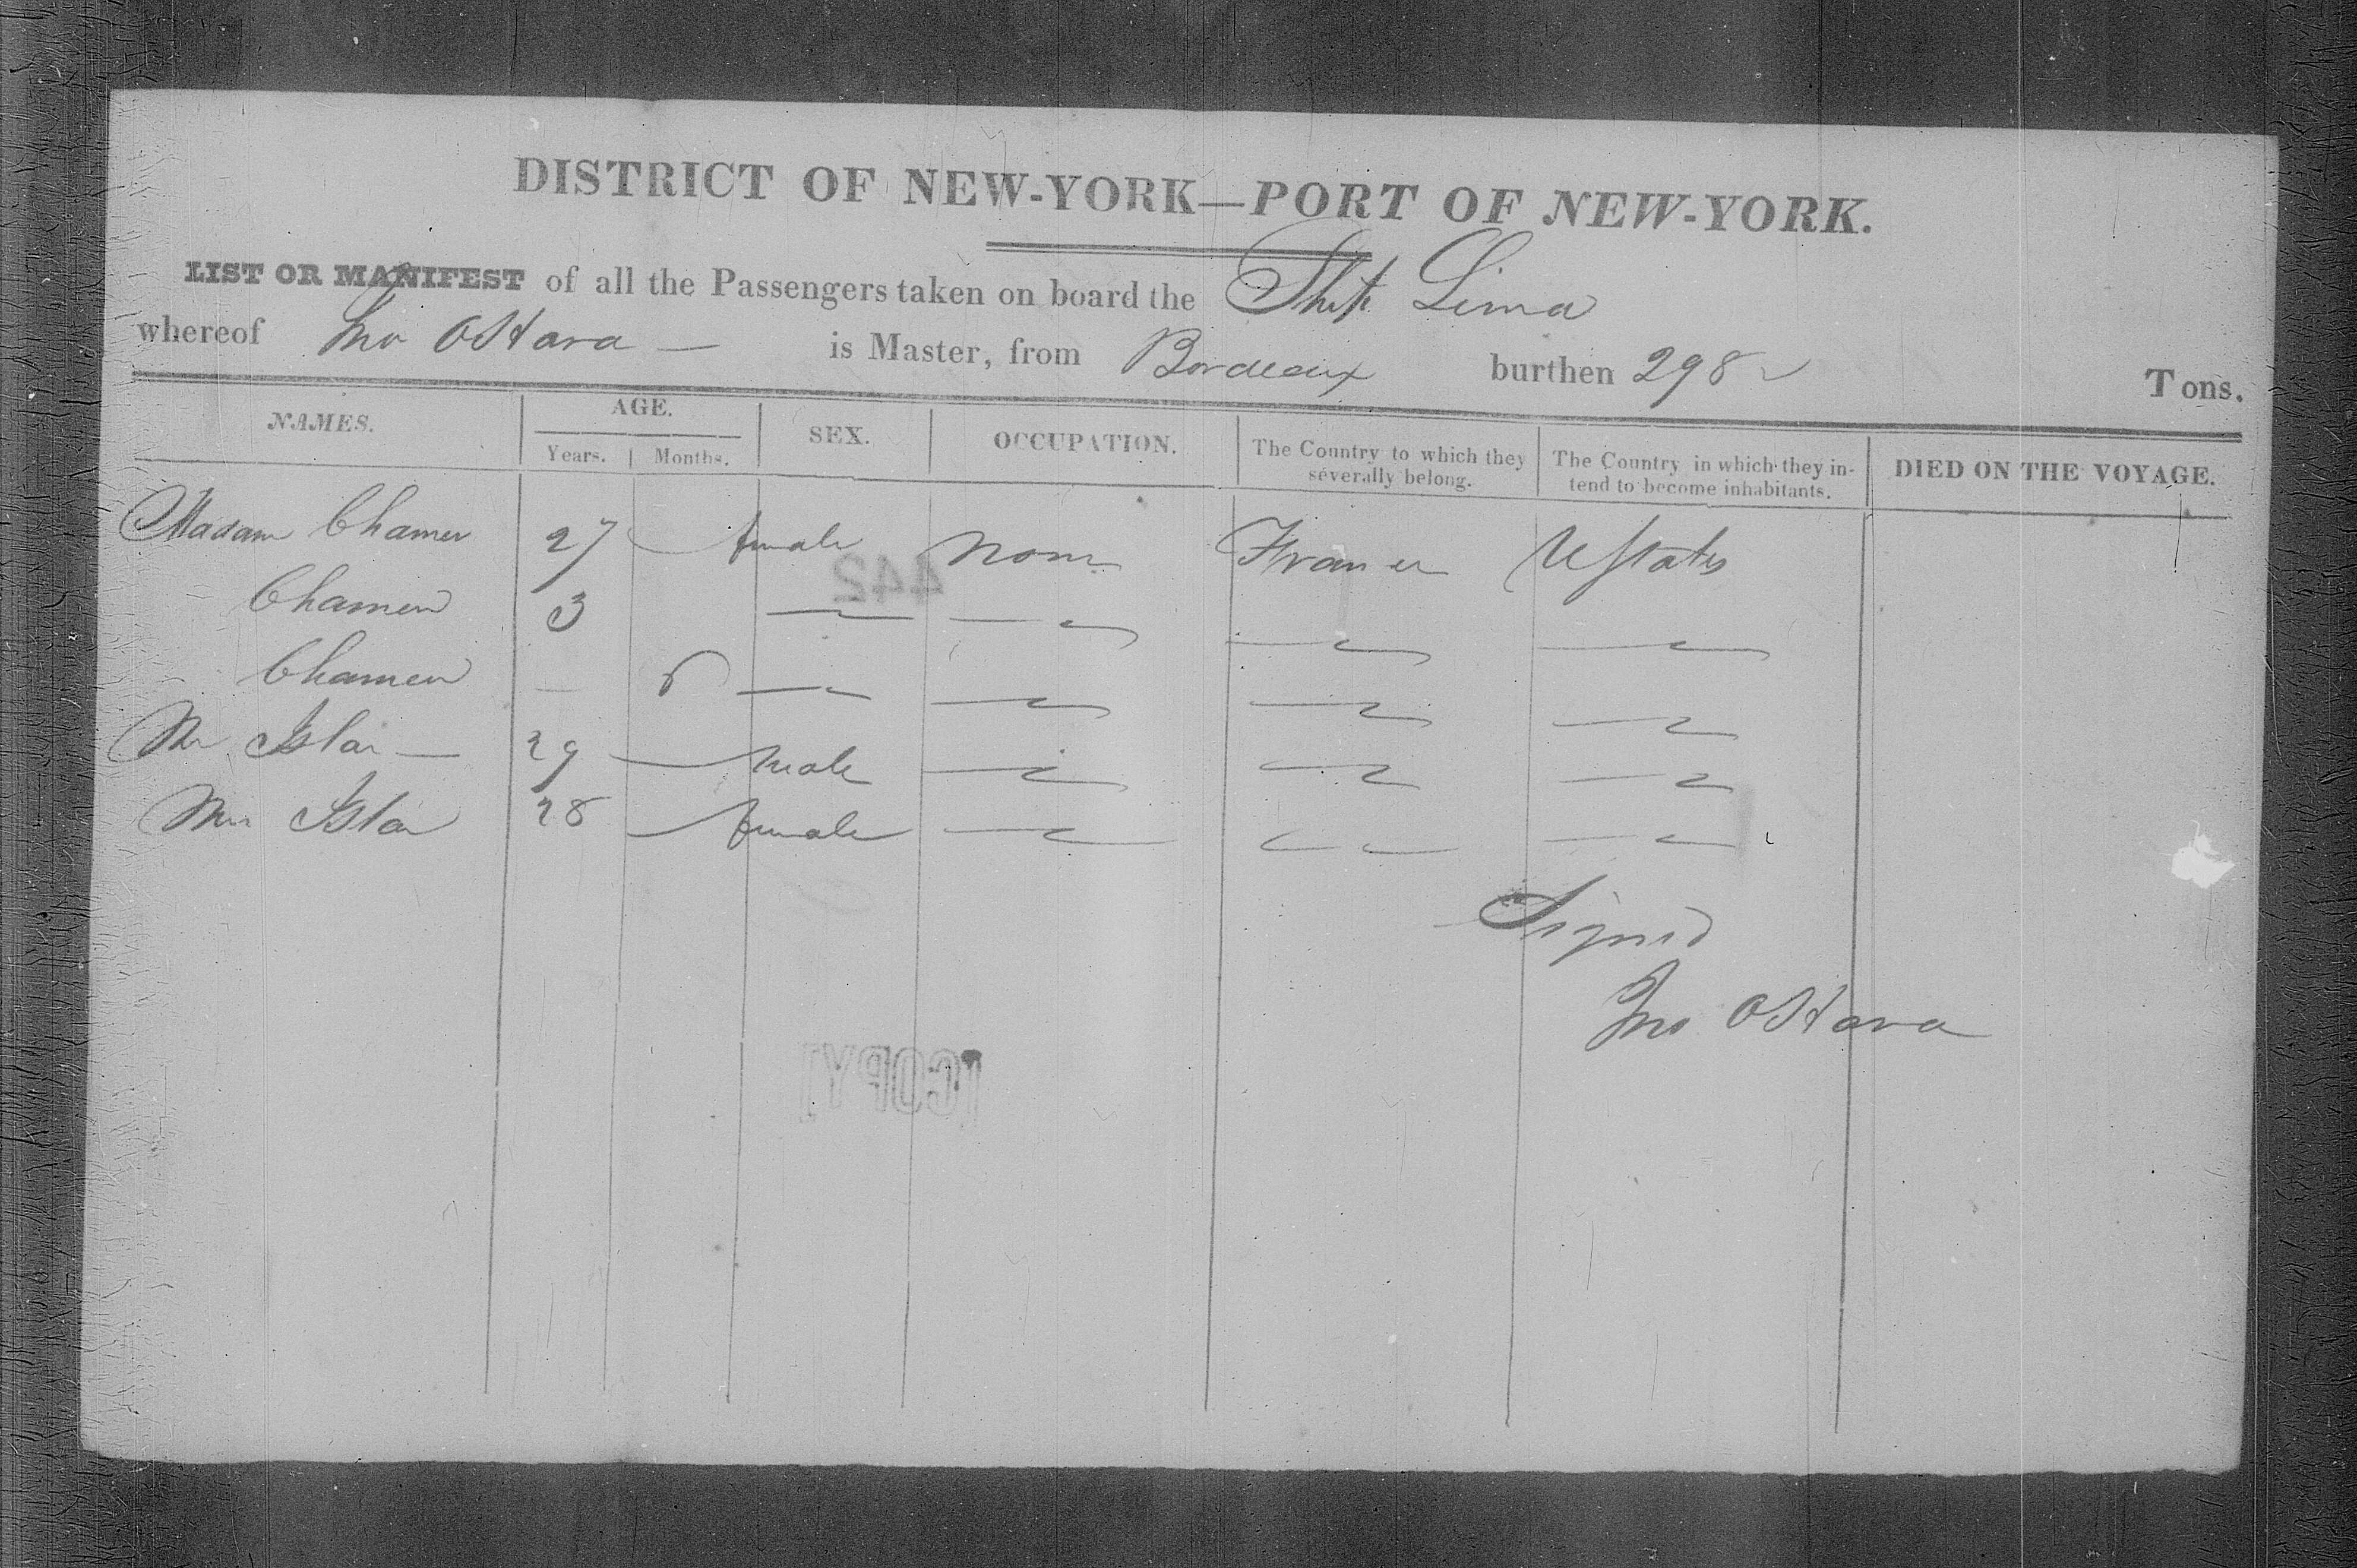 DISTRICT OF NEW-YORK—PORT OF NEW-YORK.
LIST OR MANIFEST of all the Passengers taken on board the Ship Lima
whereof Jno OHara — is Master, from Bordeaux burthen 298 Tons.
NAMES. AGE. SEX. OCCUPATION. The Country to which they severally belong. The Country in which they intend to become inhabitants. DIED ON THE VOYAGE.
Years. Months.
Madam 27 female None France UStates
442
3
Mr 29 male
Mrs 28 female
Signed
Jno OHara
[COPY]